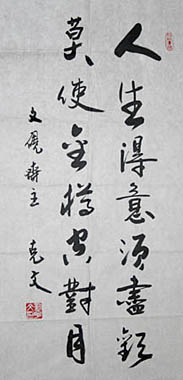 人生得意须盡歡
莫使金樽空對月
文魁齋主 克文